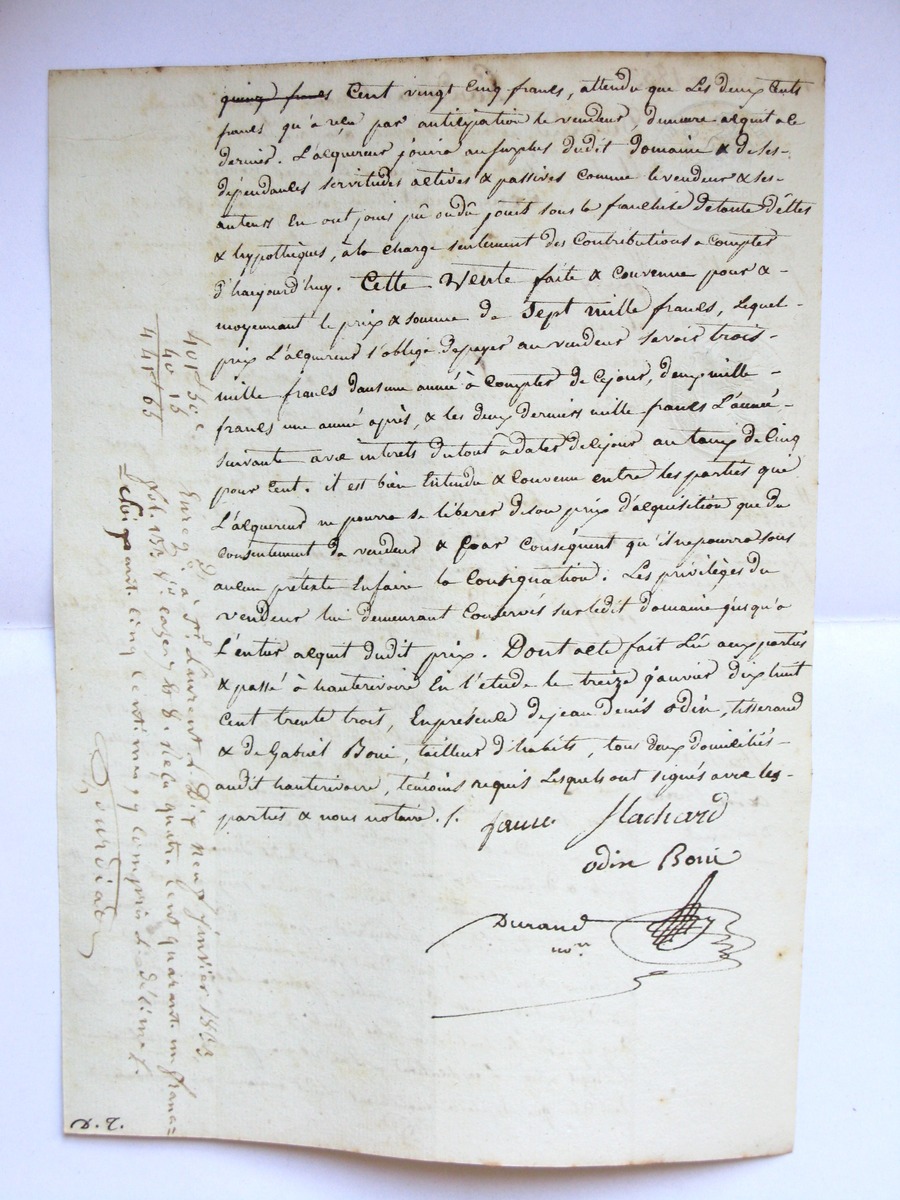 quinze francs Cent vingt Cinq francs, attendu que Les deux Cents
francs qu'a reçu par anticipation le vendeur, demeure acquit a ce
dernier. L'acquereur jouira au surplus dudit domaine & de ses-
dépendances servitudes actives & passives comme le vendeur & ses-
auteurs En ont joui pû ou dû jouir sous la franchise de toute dêttes
& hypothèques, à la charge seulement des Contributions a Compter
d'haujourd'huy. Cette Vente faite & Convenue pour & -
moyennant le prix & somme de Sept mille francs, Lequel-
prix L'acquereur s'oblige de payer au vendeur Savoir trois-
mille francs dans une année à Compter de Ce jour, deux mille -
francs une année après, & les deux derniers mille francs L'année-
suivante avec intérets du tout a dater de Ce jour au taux de Cinq
pour Cent. il est bien Entendu & Convenu entre les parties que
L'acquereur ne pourra se libérer de son prix d'acquisition que du
consentement du vendeur & par Conséquent qu'il ne pourra sous
aucun prétexte En faire la Consignation. Les privilèges du
vendeur lui demeurant Conservés sur ledit domaine jusqu'a
L'entier acquit dudit prix. Dont acte fait Lû aux parties
& passé à hauterivoire En l'étude le treize janvier dix huit
Cent trente trois, En présence de jean denis odin, tisserand
& de Gabriel Boui, tailleur d'habits, tous deux domiciliés-
audit hauterivoire, témoins requis Lesquels ont signés avec les-
parties & nous notaire. /.
Flachard
odin Boui
Durand
nore.
401 50 c.
40 15
441 65
Enregé. à St. Laurent le Dix neuf janvier 1833
fol. 153 Vo. cazes 7 & 8. reçu quatre Cent quarante un francs=
= cinq centimes y compris le décime /.
D. T.